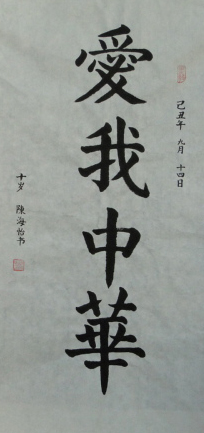 己丑年 九月 十四日
愛我中華
十岁 陳海怡书